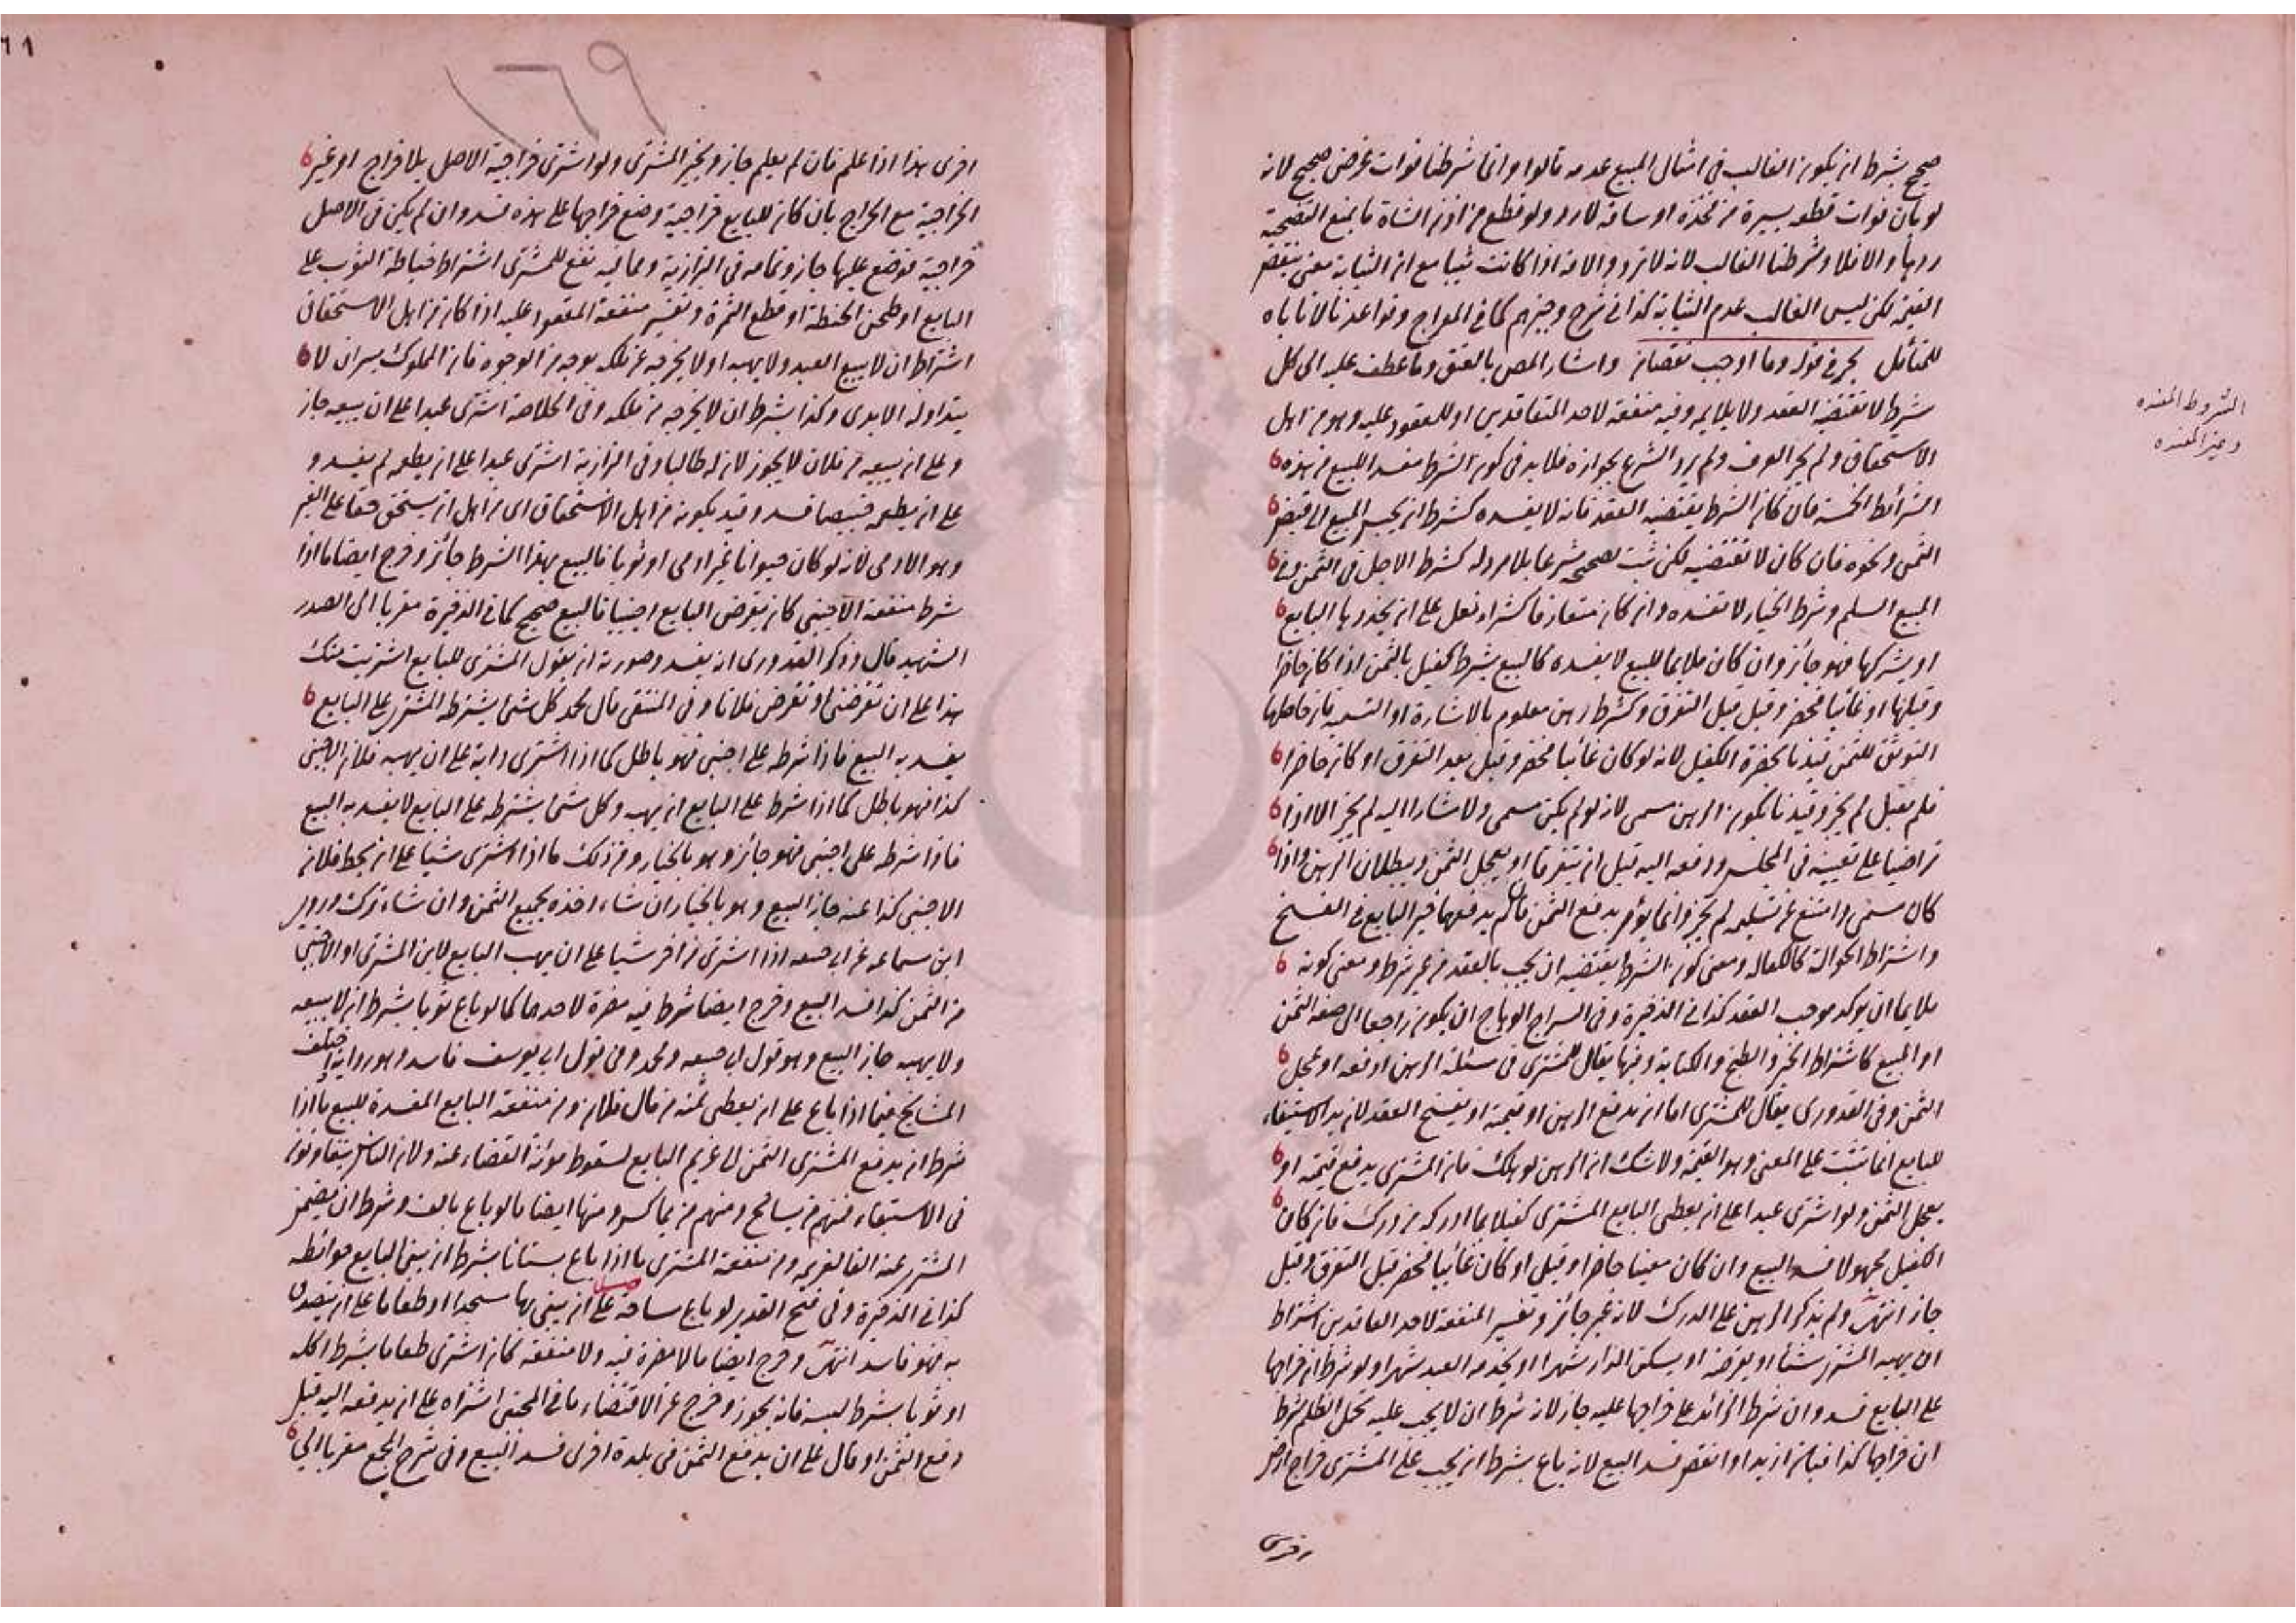 صحيح بشرط ان يكون الغالب في امثال المبيع عدمه قالوا وانما شرطنا فوات غرض صحيح لانه
لو بان فوات قطعه يسيرة من فخذه او ساقه لا رد ولو قطع من اذن الشاة ما يمنع التضحية
ردها والا فلا وشرطنا الغالب لانه لا ترد الامة اذا كانت ثيبا مع ان الثيابة معنى ينقص
القيمة لكن ليس الغالب عدم الثيابة كذا في شرح وجيزهم كما في المعراج وقواعدنا لا تاباه
للمتأمل بحر في قوله وما اوجب نقصان واشار المص بالعتق وما عطف عليه الى كل
شرط لا يقتضيه العقد ولا يلايمه وفيه منفعة لاحد المتعاقدين او للمعقود عليه وهو من اهل
الاستحقاق ولم يجر العرف ولم يرد الشرع بجوازه فلا بد في كون الشرط مفسد البيع من هذه
الشرائط الخمسة فان كان الشرط يقتضيه العقد فانه لا يفسده كشرط ان يحبس المبيع الى قبض
الثمن ونحوه فان كان لا يقتضيه لكن ثبت تصحيحه شرعا بلا مرد له كشرط الاجل في الثمن وفي
المبيع السلم وشرط الخيار لا تفسده وان كان متعارفا كشراء نعل على ان يحذوها البايع
او يشركها فهو جائز وان كان ملايما للبيع لا يفسده كالبيع بشرط كفيل بالثمن اذا كان حاضرا
وقبلها او غائبا فحضر وقبل قبل التفرق وكشرط رهن معلوم بالاشارة او التسمية فان حاصلها
التوثق للثمن قيدنا بحضرة الكفيل لانه لو كان غائبا فحضر وقبل بعد التفرق او كان حاضرا
فلم يقبل لم يجز وقيدنا بكون الرهن مسمى لانه لو لم يكن مسمى ولا مشارا اليه لم يجز الا اذا
تراضيا على تعيينه في المجلس ودفعه اليه قبل ان يتفرقا او يعجل الثمن ويبطلان الرهن واذا
كان مسمى وامتنع عن تسليمه لم يجبر وانما يؤمر بدفع الثمن فان لم يدفعهما خير البايع في الفسخ
واشتراط الحوالة كالكفالة ومعنى كون الشرط يقتضيه ان يجب بالعقد من غير شرط ومعنى كونه
ملايما ان يوكد موجب العقد كذا في الذخيرة وفي السراج الوهاج ان يكون راجعا الى صفة الثمن
او المبيع كاشتراط الخبز والطبخ والكتابة وفيها يقال للمشتري في مسئلة الرهن ادفعه او عجل
الثمن وفي القدوري يقال للمشتري اما ان يدفع الرهن او قيمته او يفسخ العقد لان يد الاستيفاء
للبايع انما تثبت على المعنى وهو القيمة ولا شك ان الرهن لو هلك فان المشتري يدفع قيمته او
يعجل الثمن ولو اشترى عبدا على ان يعطى البايع المشتري كفيلا بما ادركه من درك فان كان
الكفيل مجهولا فسد البيع وان كان معينا حاضرا وقبل او كان غائبا فحضر قبل التفرق وقبل
جاز انتهى ولم يذكر الرهن على الدرك لانه غير جائز وتفسير المنفعة لاحد العاقدين اشتراط
ان يهبه المشتري شيئا او يقرضه او يسكن الدار شهرا او يخدمه العبد شهرا ولو شرط ان خراجها
على البايع فسد وان شرط الزائد على خراجها عليه جاز لانه شرط ان لا يجب عليه تحمل الظلم شرط
ان خراجها كذا فبان ازيد او انقص فسد البيع لانه باع بشرط ان يجب على المشتري خراج ارض
اخرى
الشروط المفسده
وغير المفسده
٦١
١٦٩
اخرى هذا اذا علم فان لم يعلم جاز ويخير المشتري ولو اشترى خراجية الاصل بلا خراج او غير
الخراجية مع الخراج بان كان للبايع خراجية وضع خراجها على هذه فسد وان لم يكن في الاصل
خراجية فوضع عليها جاز وتمامه في البزازية ومما فيه نفع للمشتري اشتراط خياطة الثوب على
البايع او طحن الحنطة او قطع الثمرة وتفسير منفعة المعقود عليه اذا كان من اهل الاستحقاق
اشتراط ان لا يبيع العبد ولا يهبه او لا يخرجه عن ملكه بوجه من الوجوه فان المملوك يسره ان لا
يتداوله الايدي وكذا بشرط ان لا يخرجه من ملكه وفي الخلاصة اشترى عبدا على ان يبيعه جاز
وعلى ان يبيعه من فلان لا يجوز لان له طالبا وفي البزازية اشترى عبدا على ان يطعمه لم يفسد و
على ان يطعمه خبيصا فسد وقيد بكونه من اهل الاستحقاق اى من اهل ان يستحق حقا على الغير
وهو الادمى لانه لو كان حيوانا غير ادمى او ثوبا فالبيع بهذا الشرط جائز وخرج ايضا ما اذا
شرط منفعة الاجنبى كان يقرض البايع اجنبيا فالبيع صحيح كما في الذخيرة معزيا الى الصدر
الشهيد قال وذكر القدوري انه يفسد وصورته ان يقول المشتري للبايع اشتريت منك
هذا على ان تقرضني او تقرض فلانا وفي المنتقى قال محمد كل شئ يشترطه المشتري على البايع
يفسد به البيع فاذا شرطه على اجنبي فهو باطل كما اذا اشترى دابة على ان يهبه فلان الاجنبي
كذا فهو باطل كما اذا شرط على البايع ان يهبه وكل شئ يشترطه على البايع لا يفسد به البيع
فاذا شرطه على اجنبى فهو جائز وهو بالخيار ومن ذلك ما اذا اشترى شيئا على ان يحط فلان
الاجنبى كذا عنه جاز البيع وهو بالخيار ان شاء اخذه بجميع الثمن وان شاء ترك وروى
ابن سماعه عن ابى حنيفه اذا اشترى من اخر شيئا على ان يهب البايع لابن المشتري او الاجنبى
من الثمن كذا فسد البيع وخرج ايضا شرط فيه مضرة لاحدهما كما لو باع ثوبا بشرط ان لا يبيعه
ولا يهبه جاز البيع وهو قول ابي حنيفه ومحمد وفي قول ابى يوسف فاسد وهو رواية واختلف
المشايخ فيما اذا باع على ان يعطى ثمنه من مال فلان ومن منفعة البايع المفسدة للبيع ما اذا
شرط ان يدفع المشتري الثمن الى غريم البايع لسقوط مؤنة القضاء عنه ولان الناس يتفاوتون
في الاستيفاء فمنهم من يسامح ومنهم من يماكس ومنها ايضا ما لو باع بالف وشرط ان يضمن
المشتري عنه الفا لغريمه ومن منفعة المشتري ما اذا باع بستانا بشرط ان يبني البايع حوائطه
كذا في الذخيرة وفي فتح القدير لو باع ساحة على ان يبنى بها مسجدا او طعاما على ان يتصدق
به فهو فاسد انتهى وخرج ايضا ما لا مضرة فيه ولا منفعة كان اشترى طعاما بشرط اكله
او ثوبا بشرط لبسه فانه يجوز وخرج عن الاقتضاء ما في المجتبى اشتراه على ان يدفعه اليه قبل
دفع الثمن او قال على ان يدفع الثمن في بلدة اخرى فسد البيع وفي شرح المجمع معزيا الى